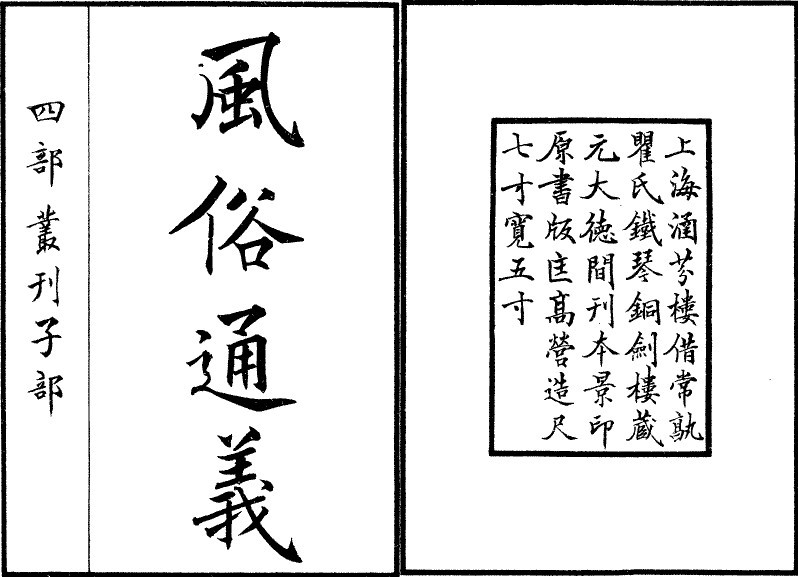 風俗通義
四部叢刊子部
上海涵芬樓借常孰
瞿氏鐵琴銅劍樓藏
元大徳間刊本景印
原書版匡高營造尺
七寸寬五寸